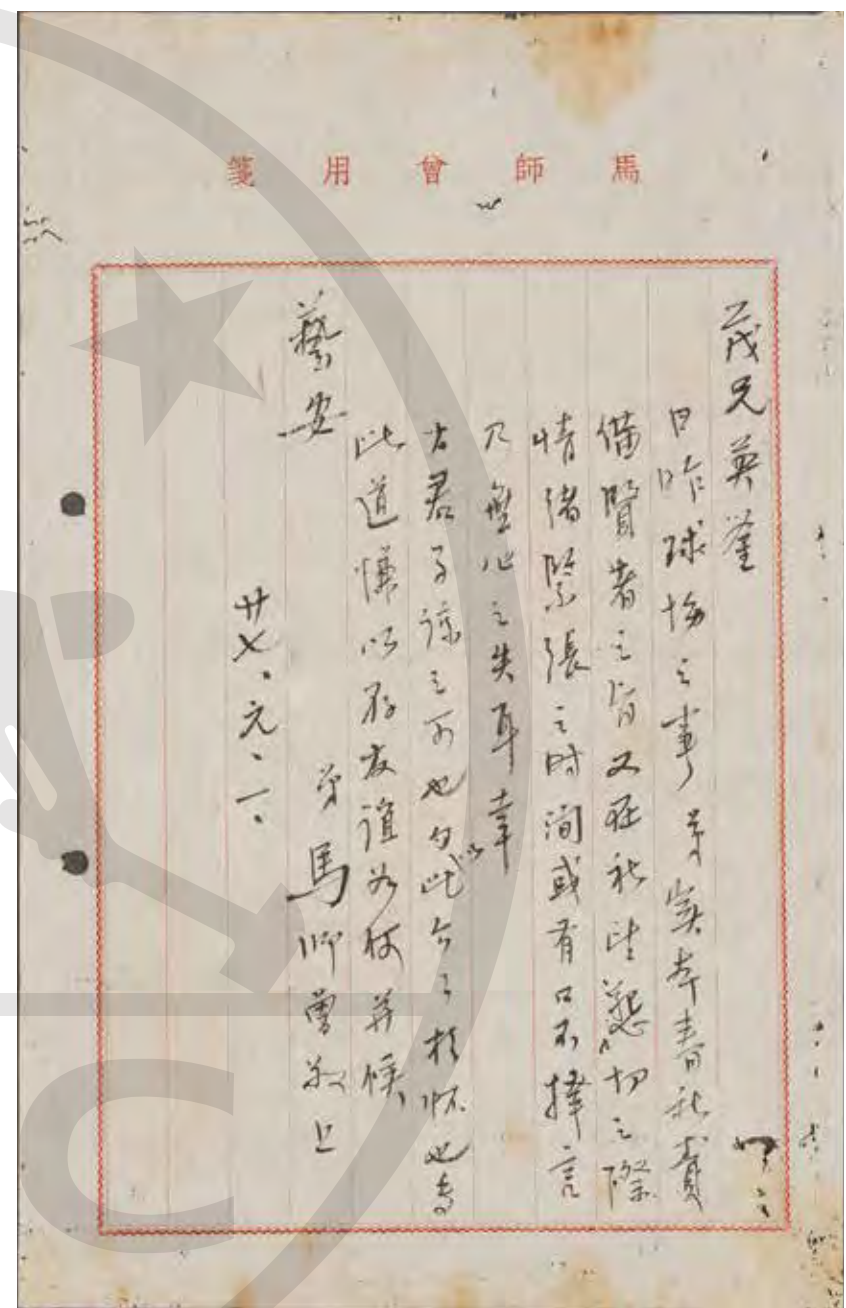 馬師曾用箋
茂兄英鑒
日昨球場之事弟實本春秋責
備賢者之旨又在求勝懇切之際
情緒緊張之時間或有口不擇言
乃無心之失耳幸
大君子諒之可也勿以此介介於懷也專
此道慊以存友誼為荷并候
藝安
弟馬師曾敬上
廿七、元、一、